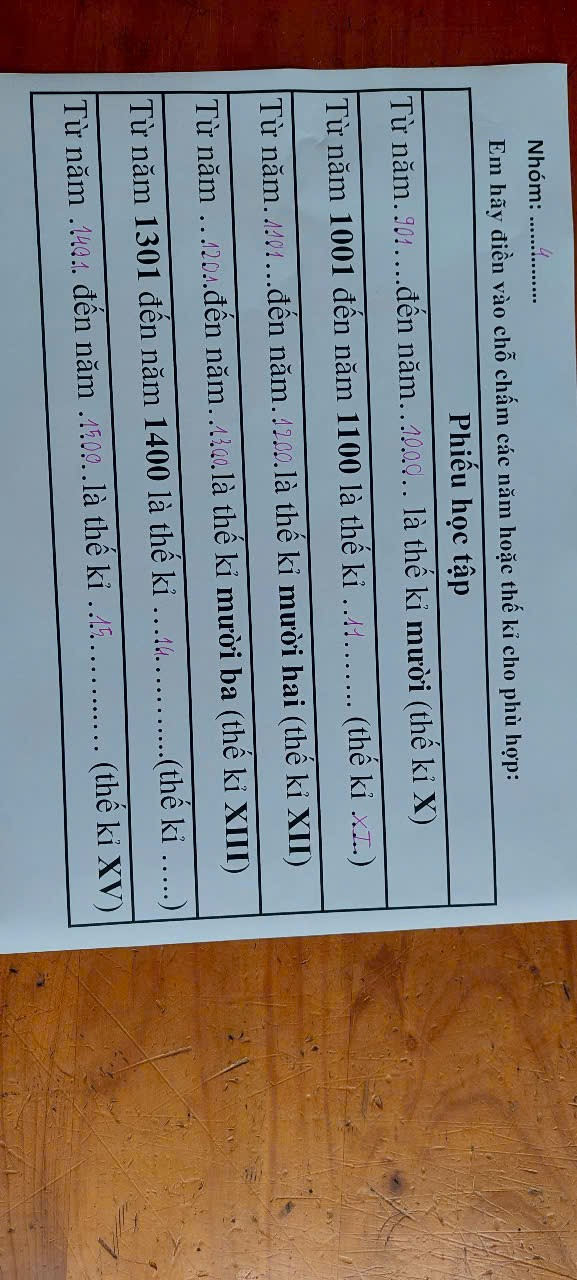 Nhóm: .......4........
Em hãy điền vào chỗ chấm các năm hoặc thế kỉ cho phù hợp:
Phiếu học tập
Từ năm..901....đến năm...1000... là thế kỉ mười (thế kỉ X)
Từ năm 1001 đến năm 1100 là thế kỉ ...11....... (thế kỉ .XI..)
Từ năm..1101...đến năm..1200.là thế kỉ mười hai (thế kỉ XII)
Từ năm ...1201.đến năm..1300.là thế kỉ mười ba (thế kỉ XIII)
Từ năm 1301 đến năm 1400 là thế kỉ ....14...........(thế kỉ .....)
Từ năm ..1401.. đến năm ..1500...là thế kỉ ...15............. (thế kỉ XV)